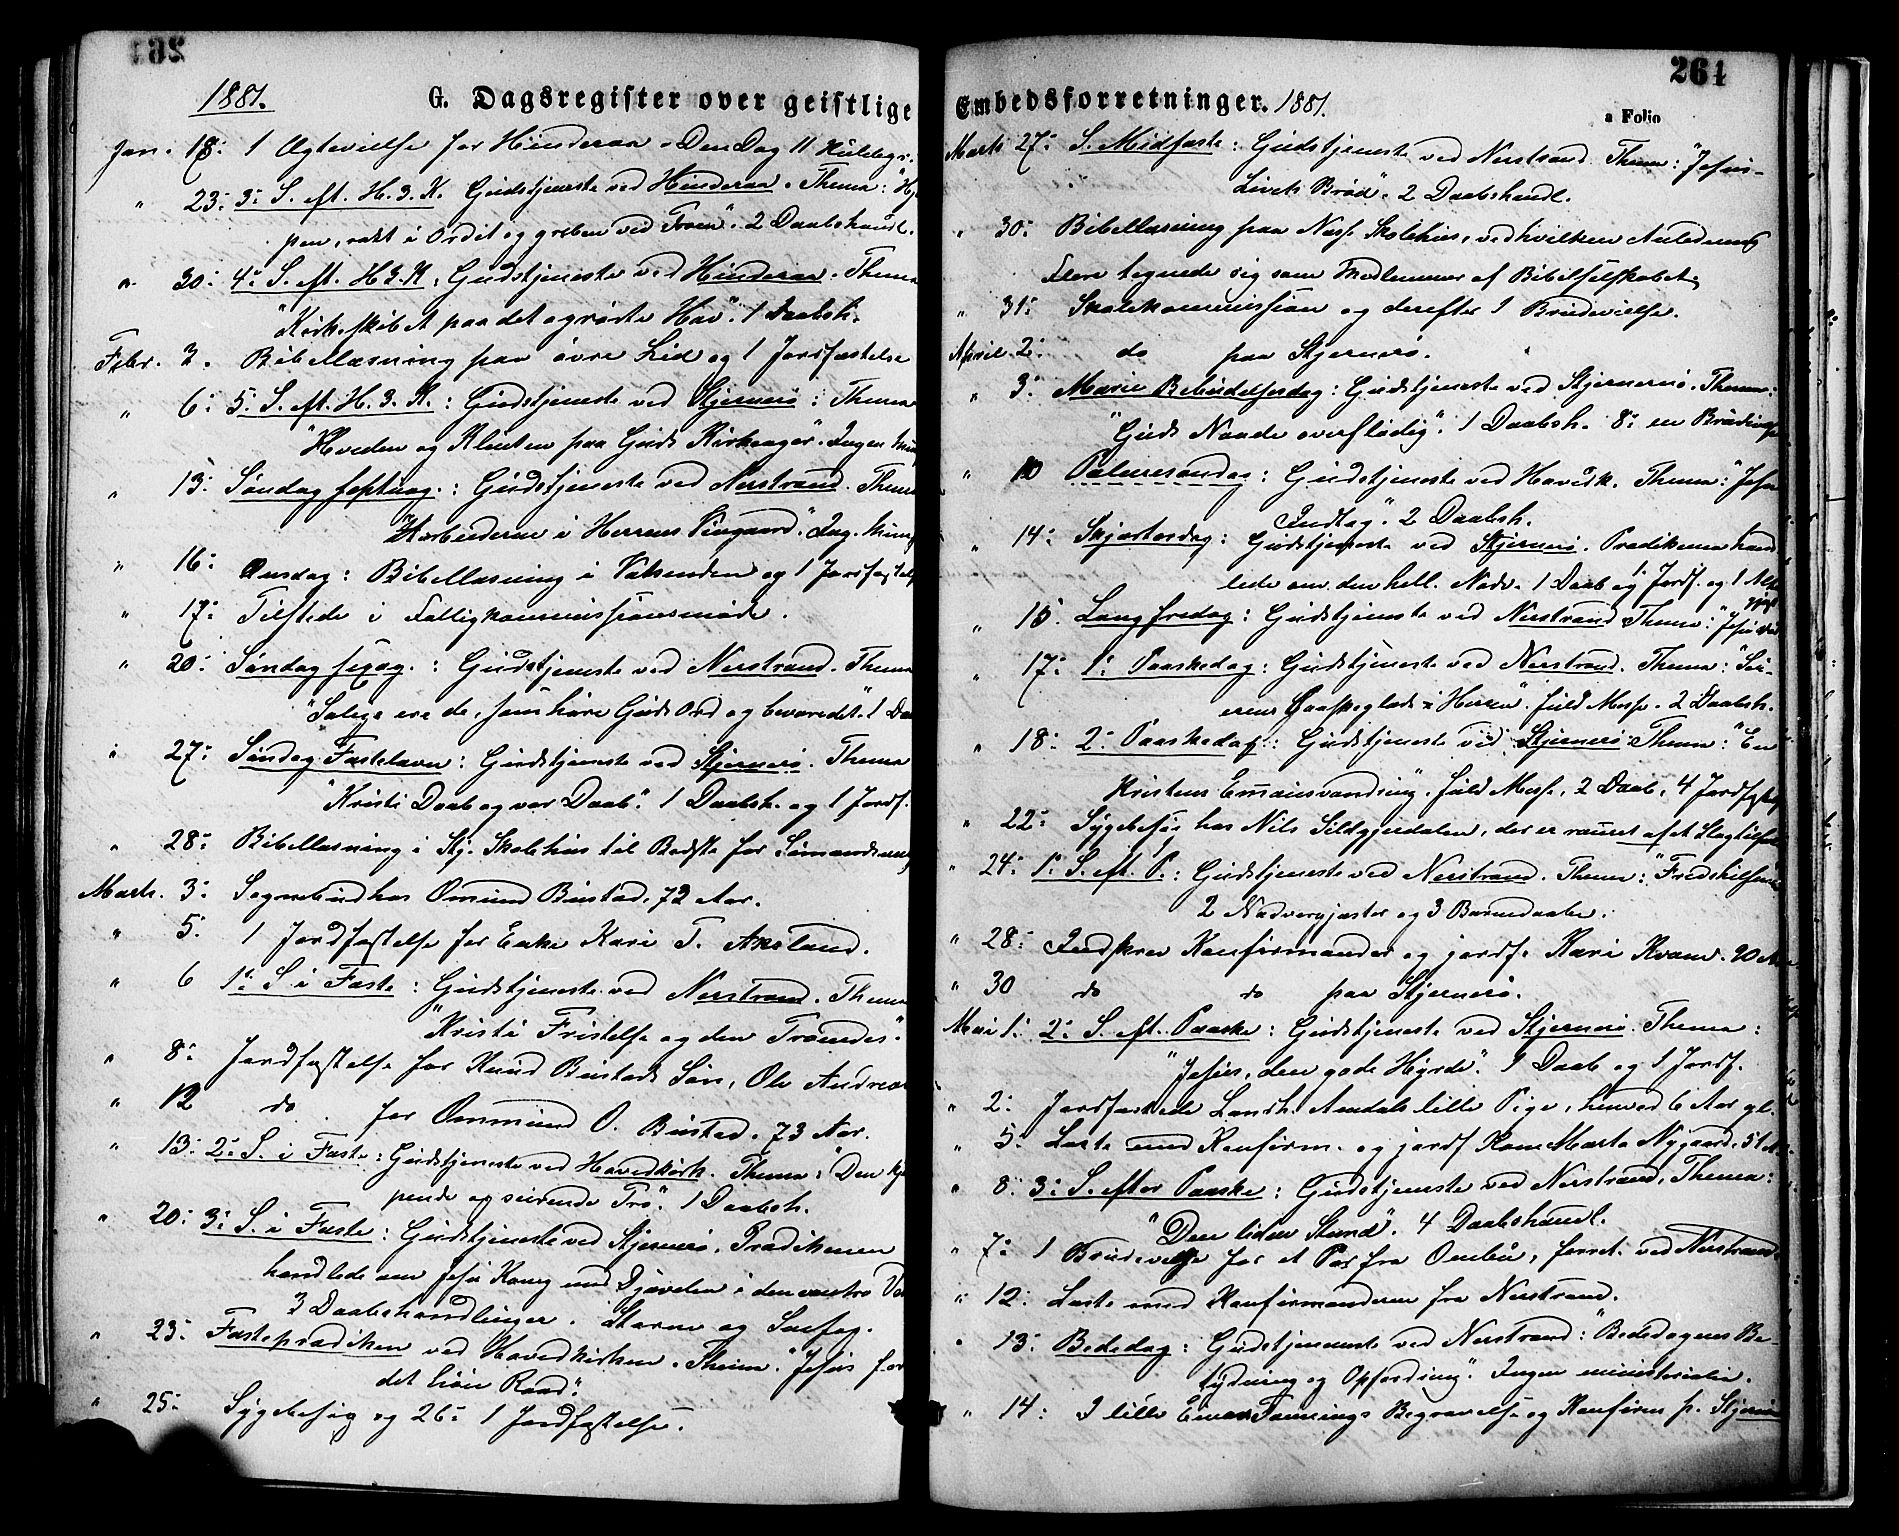 1881.
G. Dagsregister over geistlige
Jan. 18: 1 Ægtevielse for Hinderaa. Den Dag 11 Kuldegr.
" 23: 3: S. eft. H. 3. K. Gudstjeneste ved Hinderaa. Thema: "Hjel
pen, rakt i Ordet og greben ved Troen". 2 Daabshandl.
" 30: 4: S. eft. H. 3. K. Gudstjeneste ved Hinderaa. Thema
"Kirkeskibet paa det oprørte Hav". 1 Daabsh.
Febr. 3. Bibellæsning paa øvre Lid og 1 Jordfæstelse
" 6: 5. S. eft. H. 3. K.: Gudstjeneste ved Stjernerø: Thema
"Hveden og Klinten paa Guds Kirkeager". Ingen
" 13: Søndag septuag.: Gudstjeneste ved Nerstrand. Thema
"Arbeiderne i Herrens Viingaard". Ing.
" 16: Onsdag: Bibellæsning i og 1 Jordfæstelse
" 17: Tilstede i Fattigkommissionsmøde.
" 20: Søndag sexag.: Gudstjeneste ved Nerstrand. Thema
"Salige ere de, som høre Guds Ord og bevaredet". 1 Daa
" 27: Søndag Fastelavn: Gudstjeneste ved Stjernerø. Thema
"Kristi Daab og vor Daab". 1 Daabsh. og 1 Jordf.
" 28: Bibellæsning i Stj. Skolehus til Bedste for Sømandsmis
Marts. 3: Sognebud hos Omund Bustad, 72 Aar.
" 5: 1 Jordfæstelse for Enke Kari T. Aksland.
" 6 1ste S. i Faste: Gudstjeneste ved Nerstrand. Thema
"Kristi Fristelse og den Troendes".
" 8: Jordfæstelse for Knud Bustads Søn, Ole Andreas
" 12 do. for Ommund O. Bustad, 73 Aar.
" 13: 2: S. i Faste: Gudstjeneste ved Hovedkirk. Thema: "Den
pende og seirende Tro". 1 Daabsh.
" 20: 3: S. i Faste: Gudstjeneste ved Stjernerø. Prædikenen
handlede om Jesu Kamp mod Djævelen i den
3 Daabshandlinger. Storm og
" 23: Fasteprædiken ved Hovedkirken. Thema: "Jesus for
det høie Raad".
" 25: Sygebesøg og 26: 1 Jordfæstelse.
264
Embedsforretninger. 1881.
a Folio
Marts 27: S. Midfaste: Gudstjeneste ved Nerstrand. Thema: "Jesus
Livets Brød". 2 Daabshandl.
" 30: Bibellæsning paa Skolehus, ved hvilken Anledning
Flere tegnede sig som Medlemmer af Bibelselskabet.
" 31: Skolekommission og derefter 1 Brudevielse.
April 2: do paa Stjernerø.
" 3: Mariæ Bebudelsesdag: Gudstjeneste ved Stjernerø. Thema:
"Guds Naade overflødig". 1 Daabsh. 8: en Brudevielse
" 10 Palmesøndag: Gudstjeneste ved Hovedk. Thema: "Jesu
Indtog". 2 Daabsh.
" 14: Skjærtorsdag: Gudstjeneste ved Stjernerø. Prædikenen hand
lede om den hell. Nadv. 1 Daab og 1 Jordf. og 1
" 15: Langfredag: Gudstjeneste ved Nerstrand. Thema: "Jesu
" 17: 1: Paaskedag: Gudstjeneste ved Nerstrand. Thema: "Sei-
erens Paaskeglæde i Herren". fuld Messe. 2 Daabsh.
" 18: 2: Paaskedag: Gudstjeneste ved Stjernerø. Thema: "En
Kristens Emausvandring". fuld Messe. 2 Daab, 4 Jordfæst
" 22: Sygebesøg hos Nils Sildgjerdalen, der er rammet af et Slagtilfælde
" 24: 1: S. eft. P.: Gudstjeneste ved Nerstrand. Thema: "Fredshilsenen
2 Nadvergjæster og 3 Barnedaaber.
" 28: Indskrev Konfirmander og jordf. Kari Kvam. 90 Aar
" 30 do do paa Stjernerø.
Mai 1: 2: S. eft. Paaske: Gudstjeneste ved Stjernerø. Thema:
"Jesus, den gode Hyrde". 1 Daab og 1 Jordf.
" 2: Jordfæstede Landh. Amdals lille Pige, henved 6 Aar gl.
" 5: Læste med Konfirm. og jordf. Kone Marta Nygaard,
" 8: 3: S. efter Paaske: Gudstjeneste ved Nerstrand, Thema:
"Den liden Stund". 4 Daabshandl.
" 7: 1 Brudevielse for et Par fra Ombo, forret. ved Nerstrand.
" 12: Læste med Konfirmanderne fra Nerstrand.
" 13: Bededag: Gudstjeneste ved Nerstrand: "Bededagens Be-
tydning og Opfordring". Ingen ministerialier.
" 14: I lille Begravelse og Konfirm. p. Stjernerø